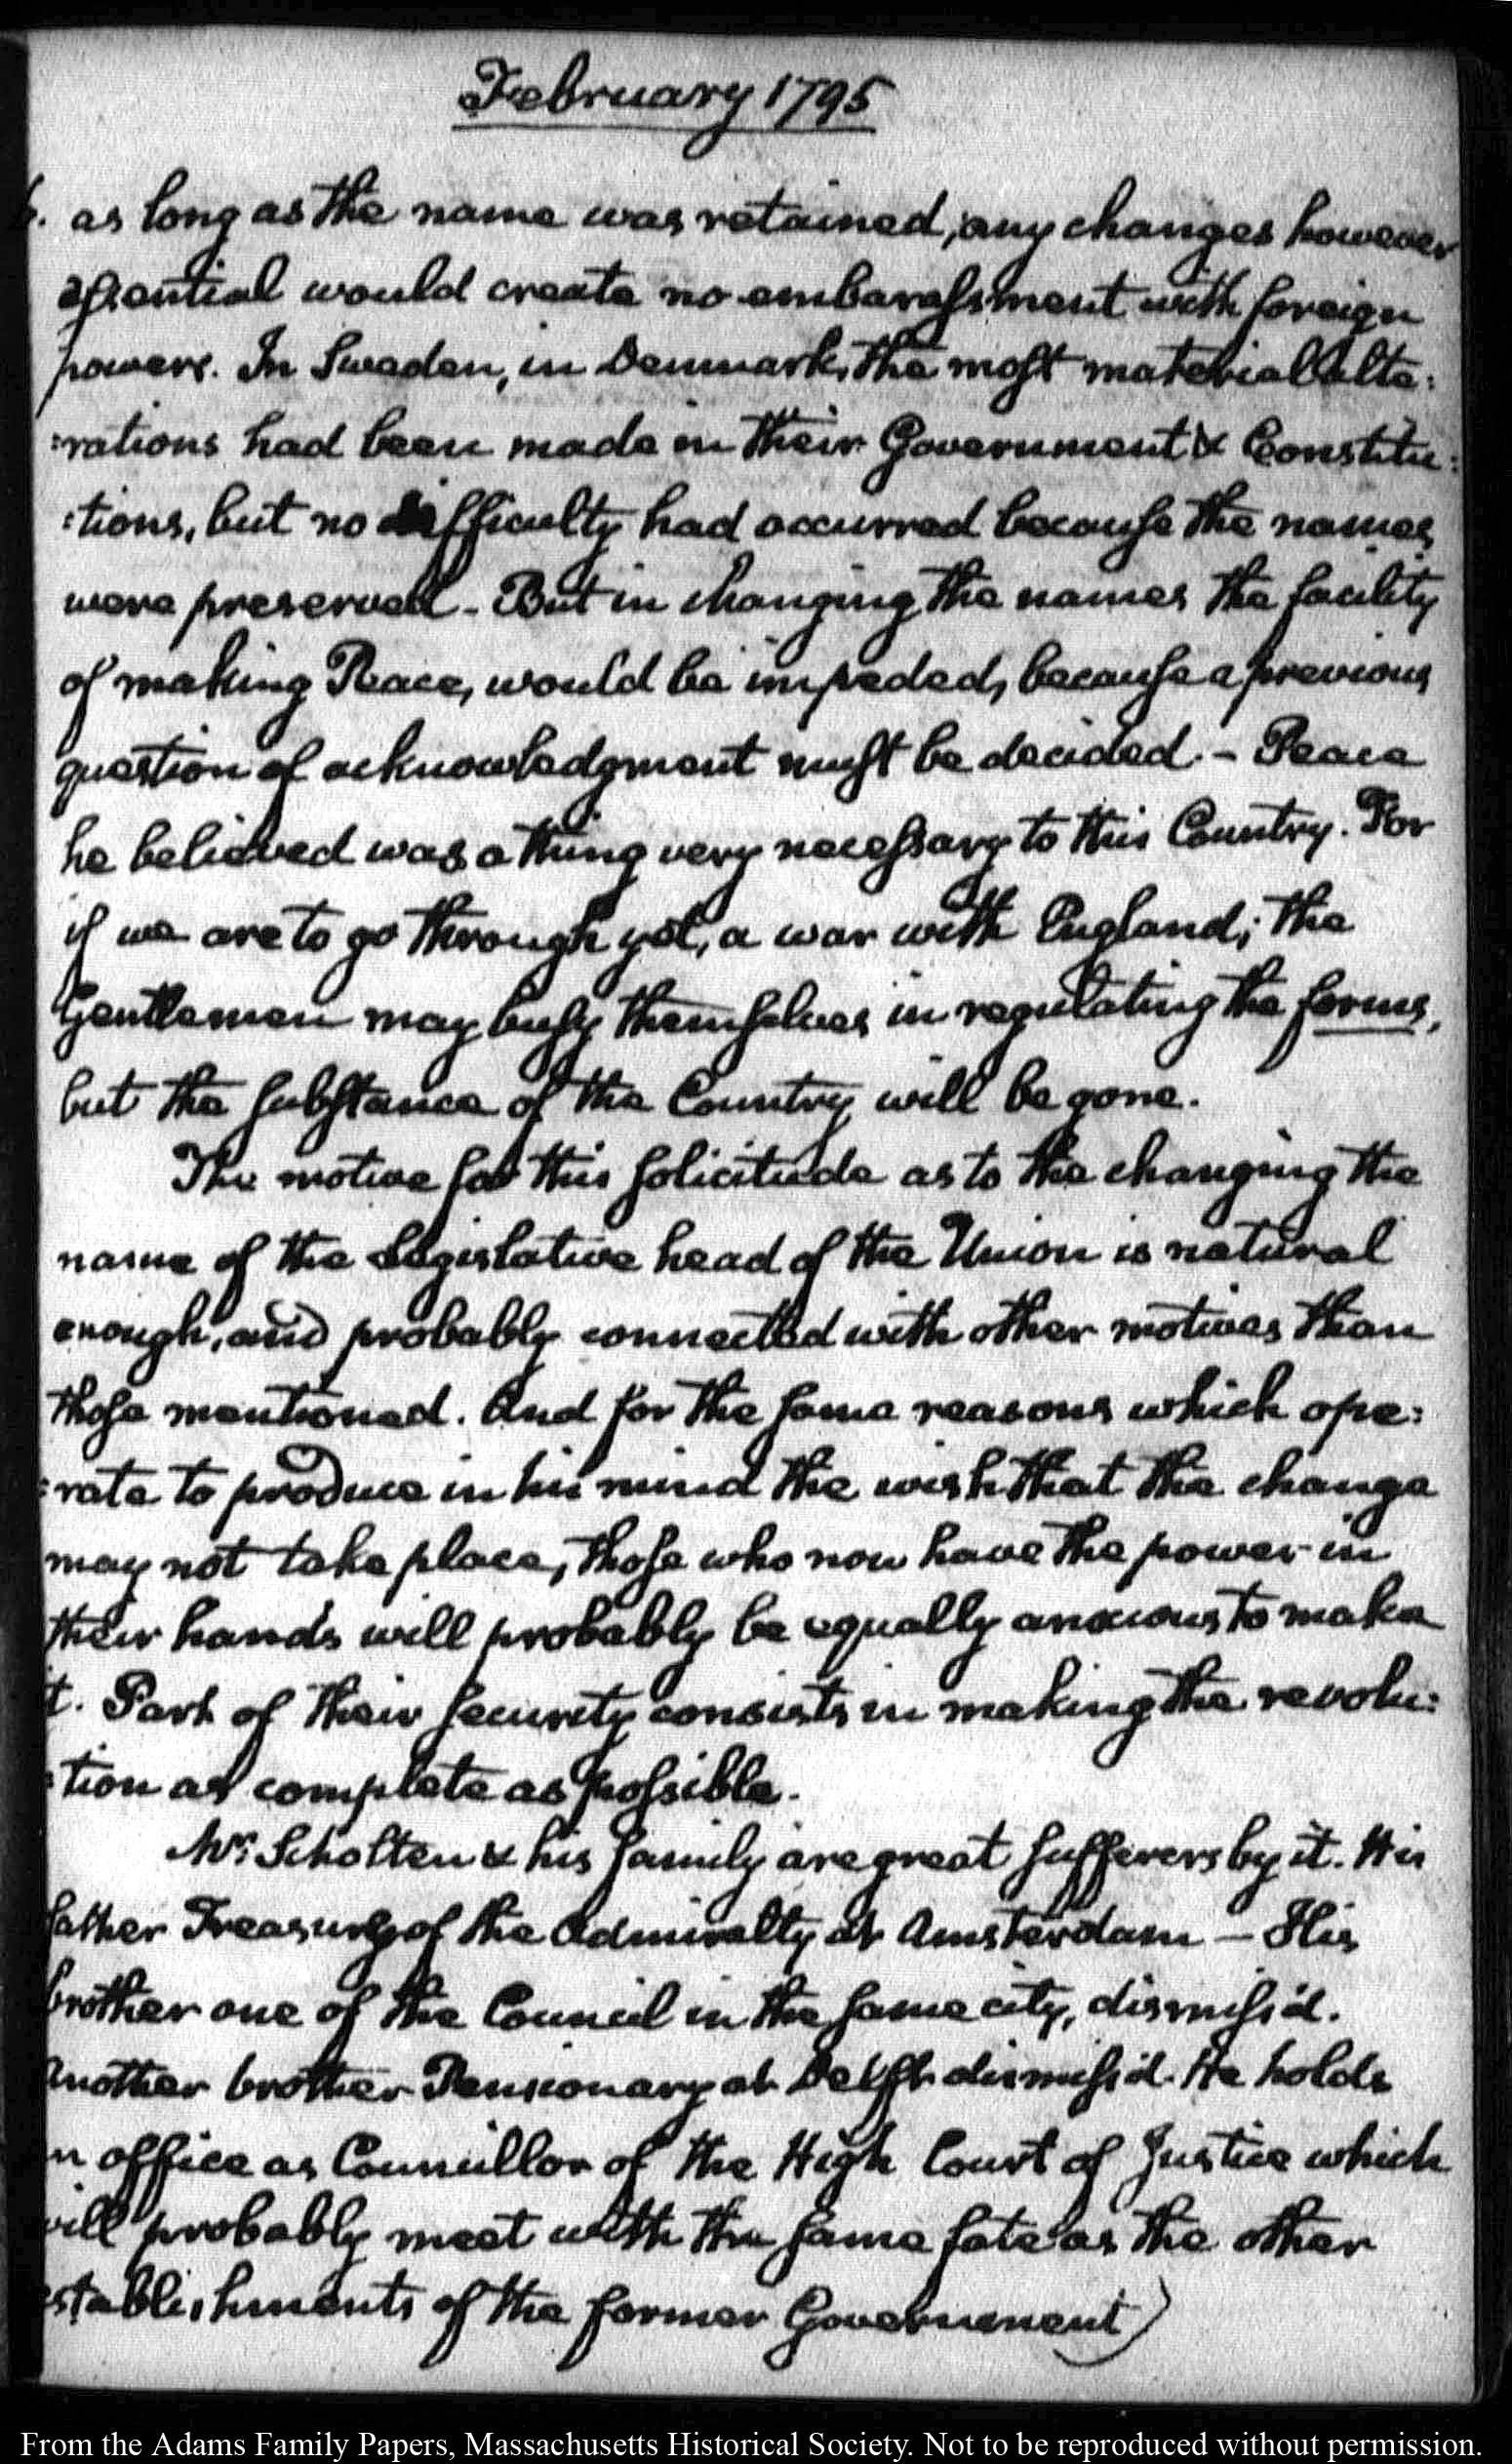 February 1795
6. as long as the name was retained, any changes however
essential would create no embarassment with foreign
powers. In Sweden, in Denmark, the most material alte:
:rations had been made in their Government & Constitu:
:tions, but no difficulty had occurred because the names
were preserved - But in changing the names the facility
of making Peace, would be impeded, because a previous
question of acknowledgment must be decided. - Peace
he believed was a thing very necessary to this Country. For
if we are to go through yet, a war with England; the
Gentlemen may busy themselves in regulating the forms,
but the substance of the Country will be gone.
The motive for this solicitude as to the changing the
name of the Legislative head of the Union is natural
enough, and probably connected with other motives than
those mentioned. And for the same reasons which ope:
:rate to produce in his mind the wish that the change
may not take place, those who now have the power in
their hands will probably be equally anxious to make
it. Part of their security consists in making the revolu:
:tion as complete as possible.
Mr. Scholten & his family are great sufferers by it. His
father Treasurer of the Admiralty at Amsterdam — His
brother one of the Council in the same city, dismiss'd.
Another brother Pensionary at Delft dismiss'd. He holds
an office as Councillor of the High Court of Justice which
will probably meet with the same fate as the other
establishments of the former Government)
From the Adams Family Papers, Massachusetts Historical Society. Not to be reproduced without permission.